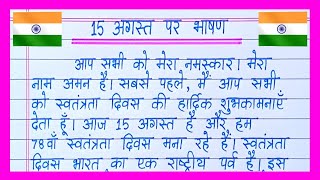 15 अगस्त पर भाषण
आप सभी को मेरा नमस्कार। मेरा
नाम अमन है। सबसे पहले, मैं आप सभी
को स्वतंत्रता दिवस की हार्दिक शुभकामनाएँ
देता हूँ। आज 15 अगस्त है और हम
78वाँ स्वतंत्रता दिवस मना रहे हैं। स्वतंत्रता
दिवस भारत का एक राष्ट्रीय पर्व है। इस